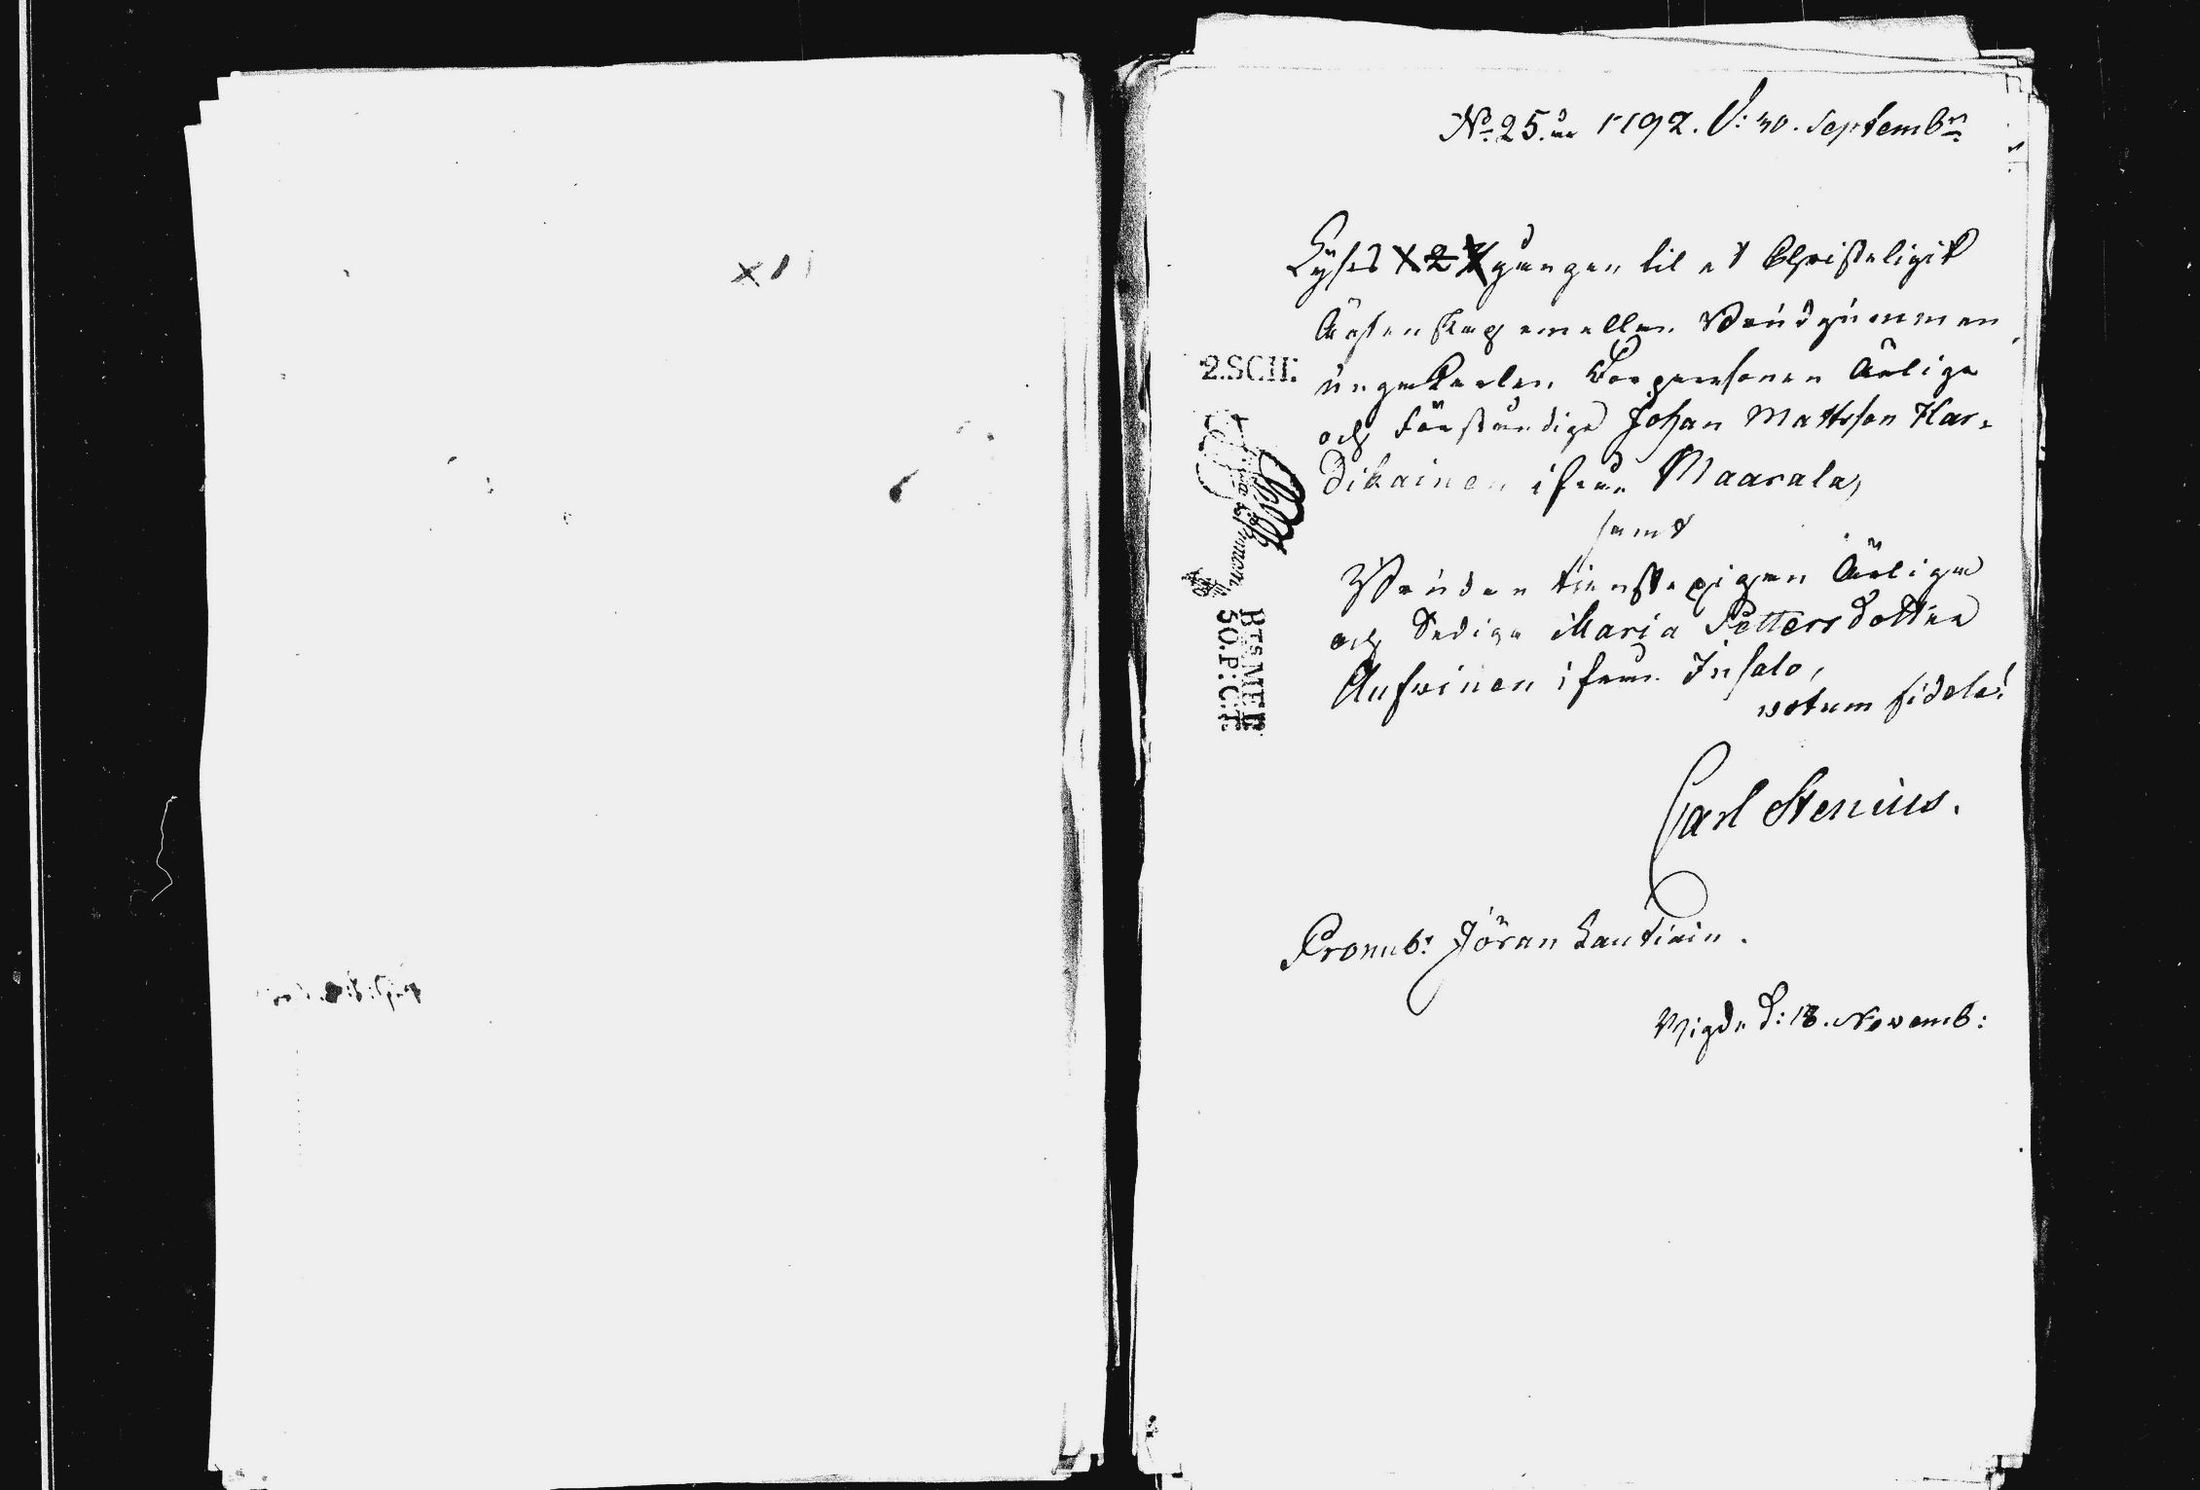 No. 25. 1792. d: 30. Septembr
Lyses 1 2 3 gången til et Christeligit
Ächtenskap emellan Brudgummen
ungeKarlen Bondesonen Ärlige
och Förståndige Johan Mattsson Kar=
dikainen ifrån Maarala,
samt
Bruden tienstepigan Ärliga
och Sediga Maria Pettersdotter
Aufvinen ifrån Insalo,
votum fidele!
Carl Stenius.
Pronub: Jöran Lautiain.
Vigde d: 18. Novemb:
2.SCH:
BTSMEE
50.P:C:T: